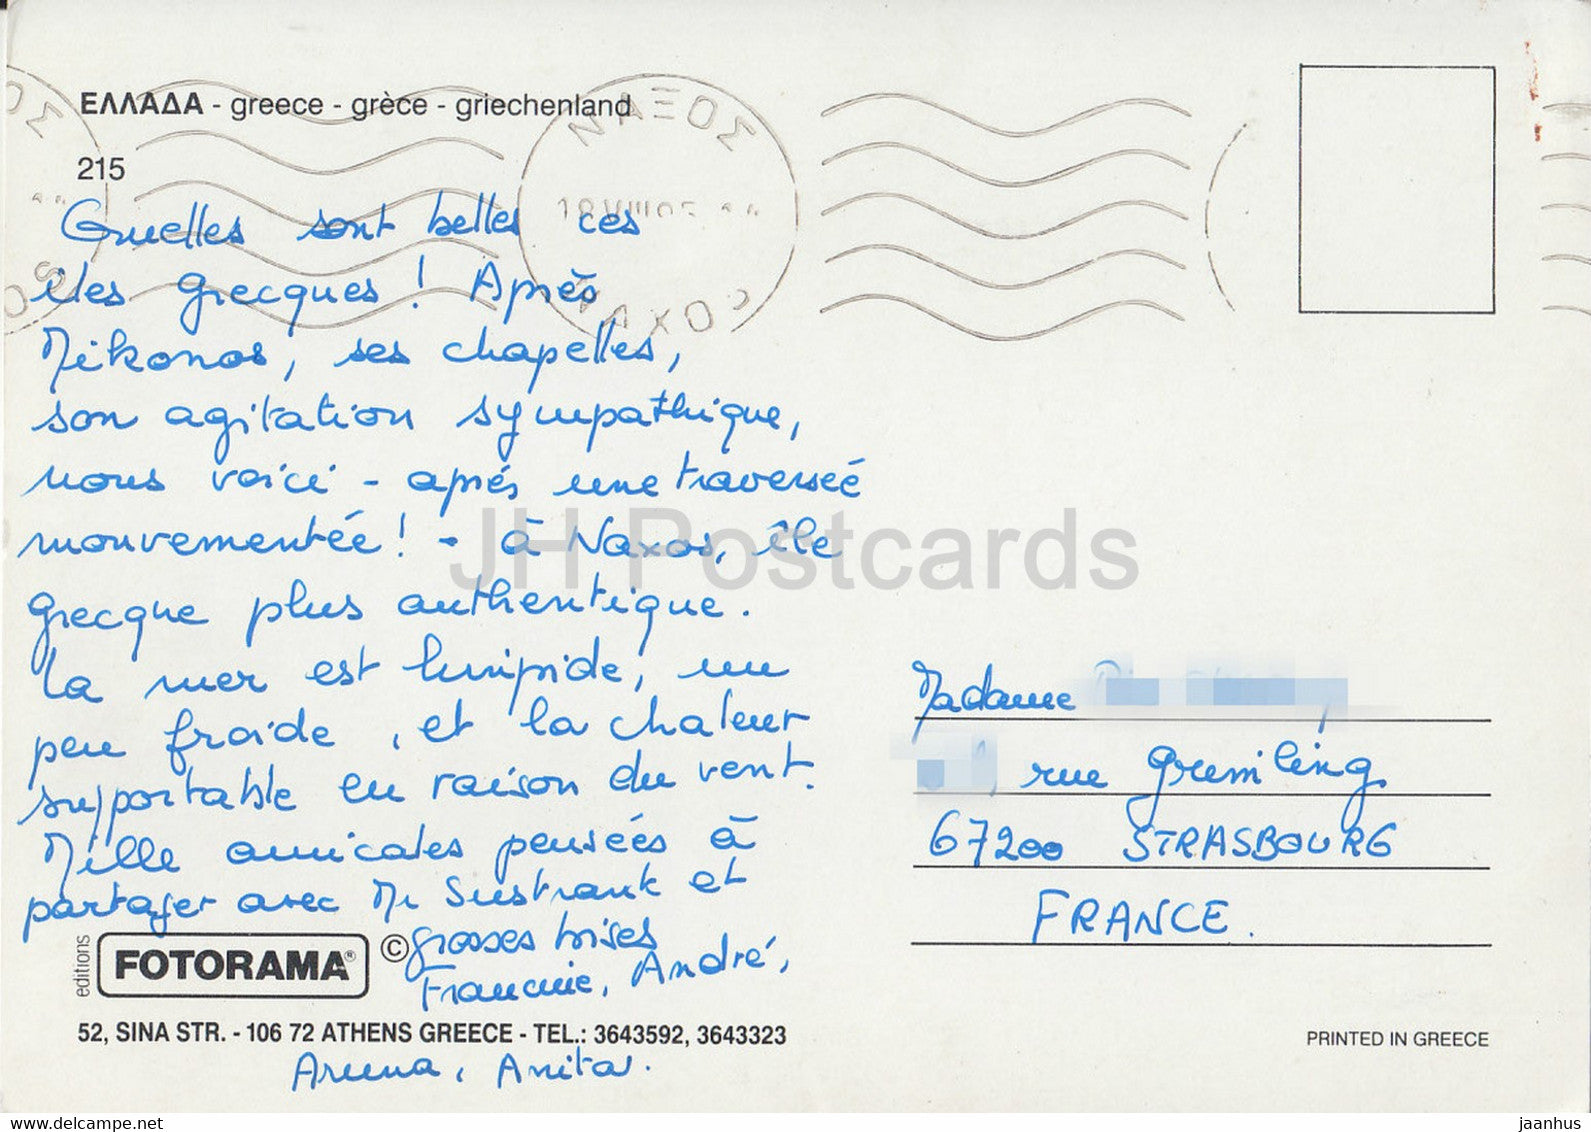 ΕΛΛΑΔΑ - greece - grèce - griechenland
215
ΝΑΞΟΣ
NAXOS
Quelles sont belles ces
îles grecques ! Après
Mikonos, ses chapelles,
son agitation sympathique,
nous voici - après une traverseé
mouvementée ! - à Naxos, île
grecque plus authentique.
La mer est limpide, un
peu froide, et la chaleur
supportable en raison du vent.
Mille amicales pensées à
partager avec Mr et
grosses bises
Francine, André,
Aruna, Anita.
Madame
rue Grumling
67200 STRASBOURG
FRANCE.
editions FOTORAMA® ©
52, SINA STR. - 106 72 ATHENS GREECE - TEL.: 3643592, 3643323
PRINTED IN GREECE
JH Postcards
www.delcampe.net
jaanhus